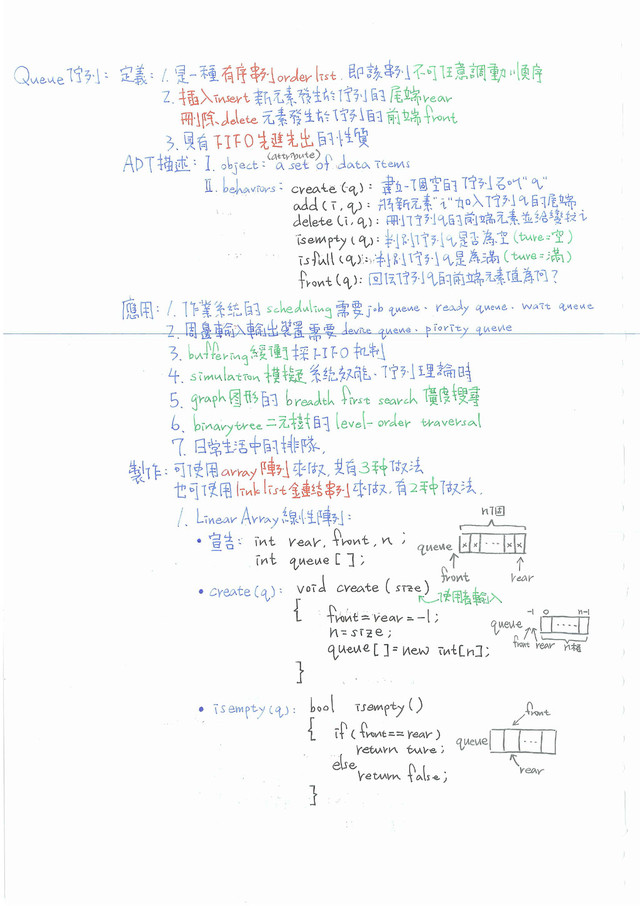 Queue佇列: 定義: 1. 是一種有序串列order list. 即該串列不可任意調動順序
2. 插入insert 新元素發生於佇列的尾端rear
刪除delete 元素發生於佇列的前端front
3. 具有FIFO先進先出的性質
(attribute)
ADT描述: I. object: a set of data items
II. behaviors: create(q): 建立一個空的佇列名叫"q"
add(i,q): 將新元素"i"加入佇列q的尾端
delete(i,q): 刪佇列q的前端元素並給變數i
isempty(q): 判別佇列q是否為空(ture=空)
isfull(q): 判別佇列q是為滿(ture=滿)
front(q): 回佇列q的前端元素值為何?
應用: 1. 作業系統的scheduling需要job queue、ready queue、wait queue
2. 周邊輸入輸出裝置需要device queue、piority queue
3. buffering緩衝採FIFO机制
4. simulation模擬系統效能、佇列理論時
5. graph图形的breadth first search廣度搜尋
6. binarytree二元樹的level-order traversal
7. 日常生活中的排隊,
製作: 可使用array陣列來做. 共有3種做法
也可使用link list金連結串列來做. 有2種做法.
1. Linear Array線性陣列:
• 宣告: int rear, front, n ;
int queue [ ];
n個
queue x x ... x x
front rear
• create(q): void create (size)
使用者輸入
{ front=rear=-1;
n=size;
queue[ ]=new int[n];
}
-1 0 n-1
queue
front rear n格
• isempty(q): bool isempty()
{ if(front==rear)
return ture;
else
return false;
}
front
queue ...
rear